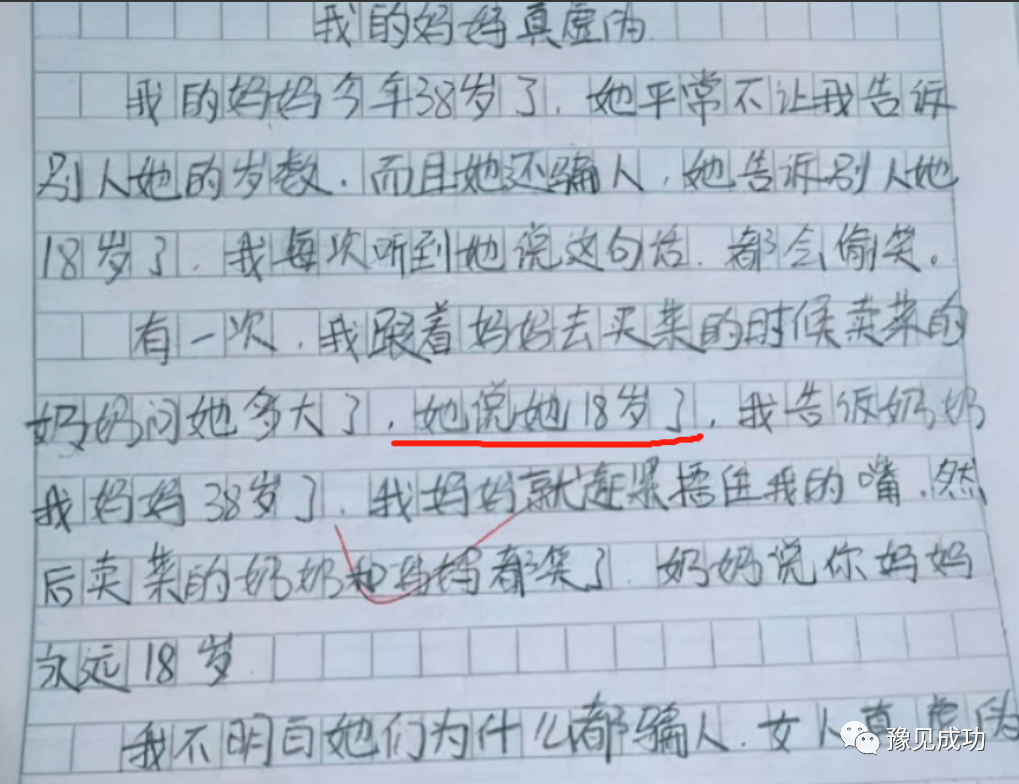 我的妈妈真虚伪
我的妈妈今年38岁了,她平常不让我告诉
别人她的岁数,而且她还骗人,她告诉别人她
18岁了,我每次听到她说这句话,都会偷笑。
有一次,我跟着妈妈去买菜的时候卖菜的
奶奶问她多大了,她说她18岁了,我告诉奶奶
我妈妈38岁了,我妈妈就赶紧捂住我的嘴,然
后卖菜的奶奶和妈妈都笑了,奶奶说你妈妈
永远18岁.
我不明白她们为什么都骗人,女人真虚伪
豫见成功